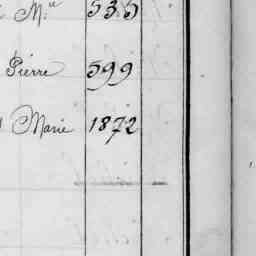 M.lle 535
Pierre 599
Marie 1872